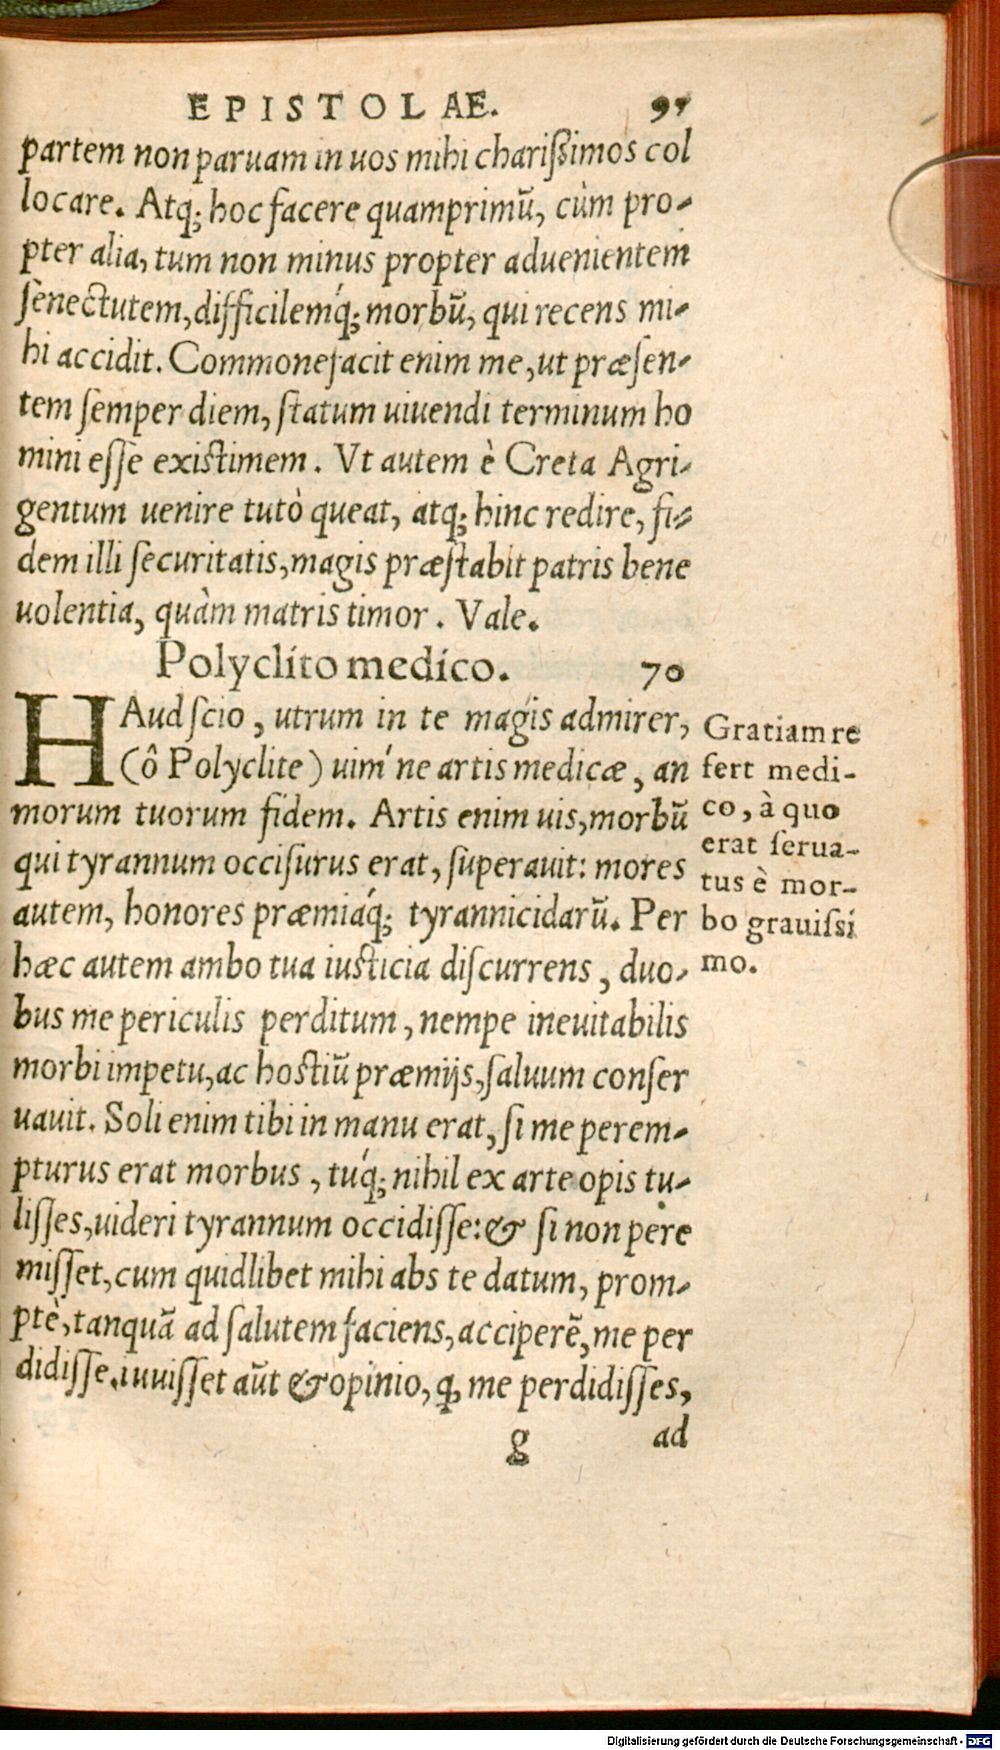 EPISTOLAE. 97
partem non paruam in uos mihi charißimos col
locare. Atq; hoc facere quamprimũ, cùm pro-
pter alia, tum non minus propter aduenientem
ſenectutem, difficilemq́; morbũ, qui recens mi-
hi accidit. Commonefacit enim me, ut præſen-
tem ſemper diem, ſtatum uiuendi terminum ho
mini eſſe exiſtimem. Vt autem è Creta Agri-
gentum uenire tutò queat, atq; hinc redire, fi-
dem illi ſecuritatis, magis præſtabit patris bene
uolentia, quàm matris timor. Vale.
Polyclito medico. 70
HAud ſcio, utrum in te magis admirer,
(ô Polyclite) uim' ne artis medicæ, an
morum tuorum fidem. Artis enim uis, morbũ
qui tyrannum occiſurus erat, ſuperauit: mores
autem, honores præmiaq́; tyrannicidarũ. Per
hæc autem ambo tua iuſticia diſcurrens, duo-
bus me periculis perditum, nempe ineuitabilis
morbi impetu, ac hoſtiũ præmijs, ſaluum conſer
uauit. Soli enim tibi in manu erat, ſi me perem-
pturus erat morbus, tuq́; nihil ex arte opis tu-
liſſes, uideri tyrannum occidiſſe: & ſi non pere
miſſet, cum quidlibet mihi abs te datum, prom-
ptè, tanquã ad ſalutem faciens, acciperẽ, me per
didiſſe. iuuiſſet aũt & opinio, ꝙ me perdidiſſes,
g ad
Gratiam re
fert medi-
co, à quo
erat ſerua-
tus è mor-
bo grauiſsi
mo.
Digitalisierung gefördert durch die Deutsche Forschungsgemeinschaft - DFG